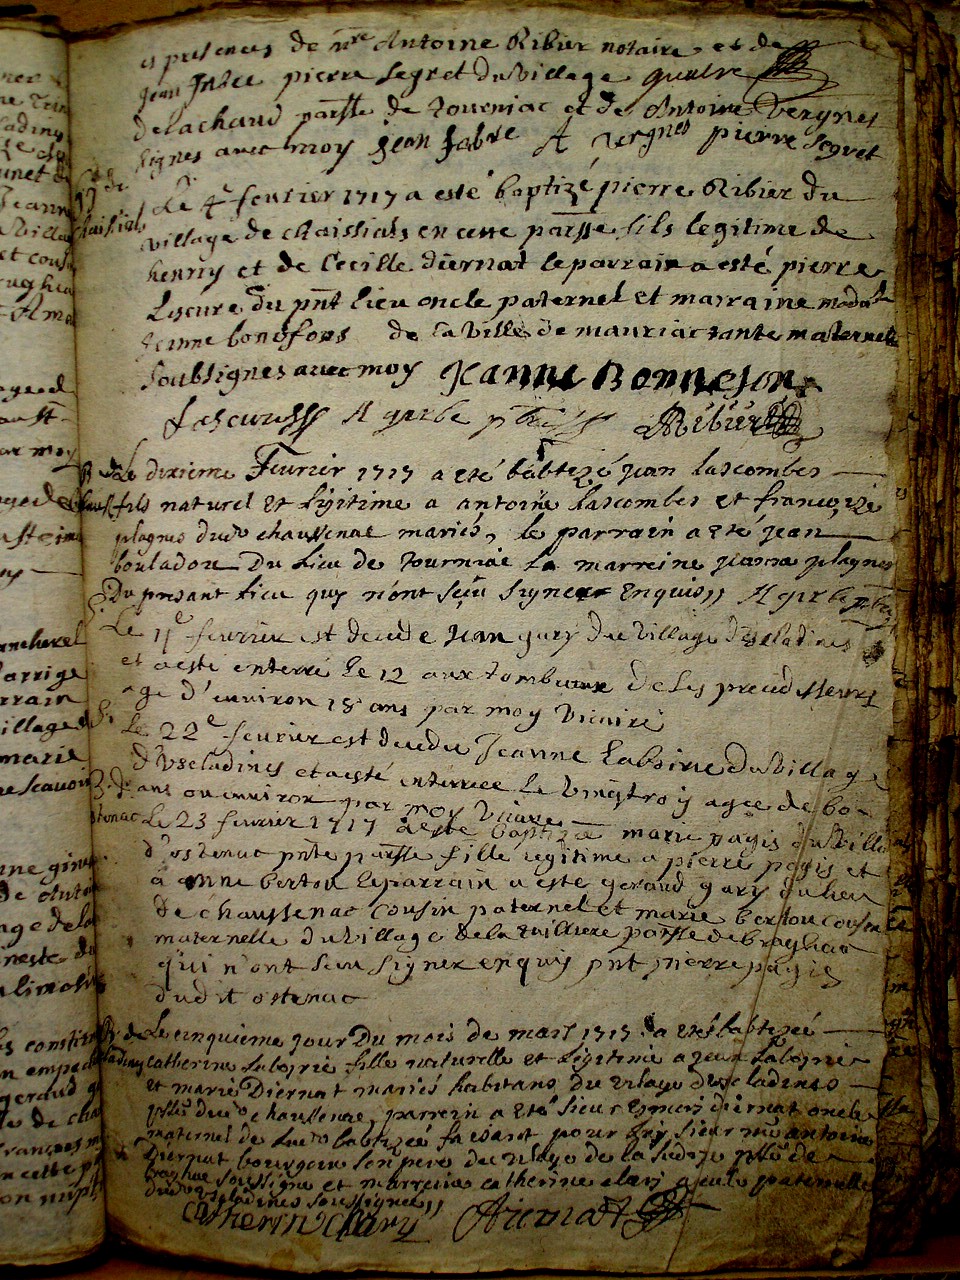 es presences de mre Antoine Ribier notaire et de
Jean Fabre pierre Segret du village
de lachaud parsse de tourniac et de Antoine Vergnes
signes avec moy Jean fabre A vergnes pierre Segret
Le 4e fevrier 1717 a esté baptizé pierre Ribier du
village de chaissials en cette parsse fils legitime de
henry et de Cecille diernat le parrain a esté pierre
Lescure du pnt lieu oncle paternel et marraine madlle
Jeanne bonefons de la ville de mauriac tante maternelle
Soubsignes avec moy Jeanne Bonnefon
Lescure A gerbe Ribier
Le dixieme Fevrier 1717 a eté babtezé jean lascombes
fils naturel et ligitime a antoine lascombes et francoize
plagnes dud chaussenac mariés, le parrain a eté jean
bouladou du lieu de tourniac la marreine jeanne plagnes
du presant lieu quy n'ont sceu signer enquis A gerbe
Le 11e fevrier est decede Jean gary du village d'escladines
et a esté enterré le 12 aux tombeaux de les predesseurs
age d'environ 18 ans par moy Vicaire
Le 22e fevrier est decedee Jeanne laboirie du village
d'Escladines et a esté enterree le vingtroy agee de 60
ans ou environ par moy Vicaire
ostenac Le 23 fevrier 1717 a esté baptizée marie pagis du village
d'ostenac pnte parsse fille legitime a pierre pagis et
a anne bertou le parrain a este geraud gary du lieu
de chaussenac cousin paternel et marie bertou cousine
maternelle du village de la tuilliere parsse de brageac
qui n'ont sceu signer enquis pnt pierre pagis
dudit ostenac
Le cinquieme jour du mois de mars 1717 a eté babtizeé
catherine laboirie fille naturelle et ligitime a jean laboirie
et marie Diernat mariés habitans du vilage descladines
psse dud chaussenac, parrein a eté sieur diernat oncle
maternel de lad babtizeé faisant pour luy sieur antoine
diernat bourgeois son pere du vilage de la psse de
soussigne et marreine catherine clari ayeule paternelle
dud escladines soussignes
Catherin Clary Diernat